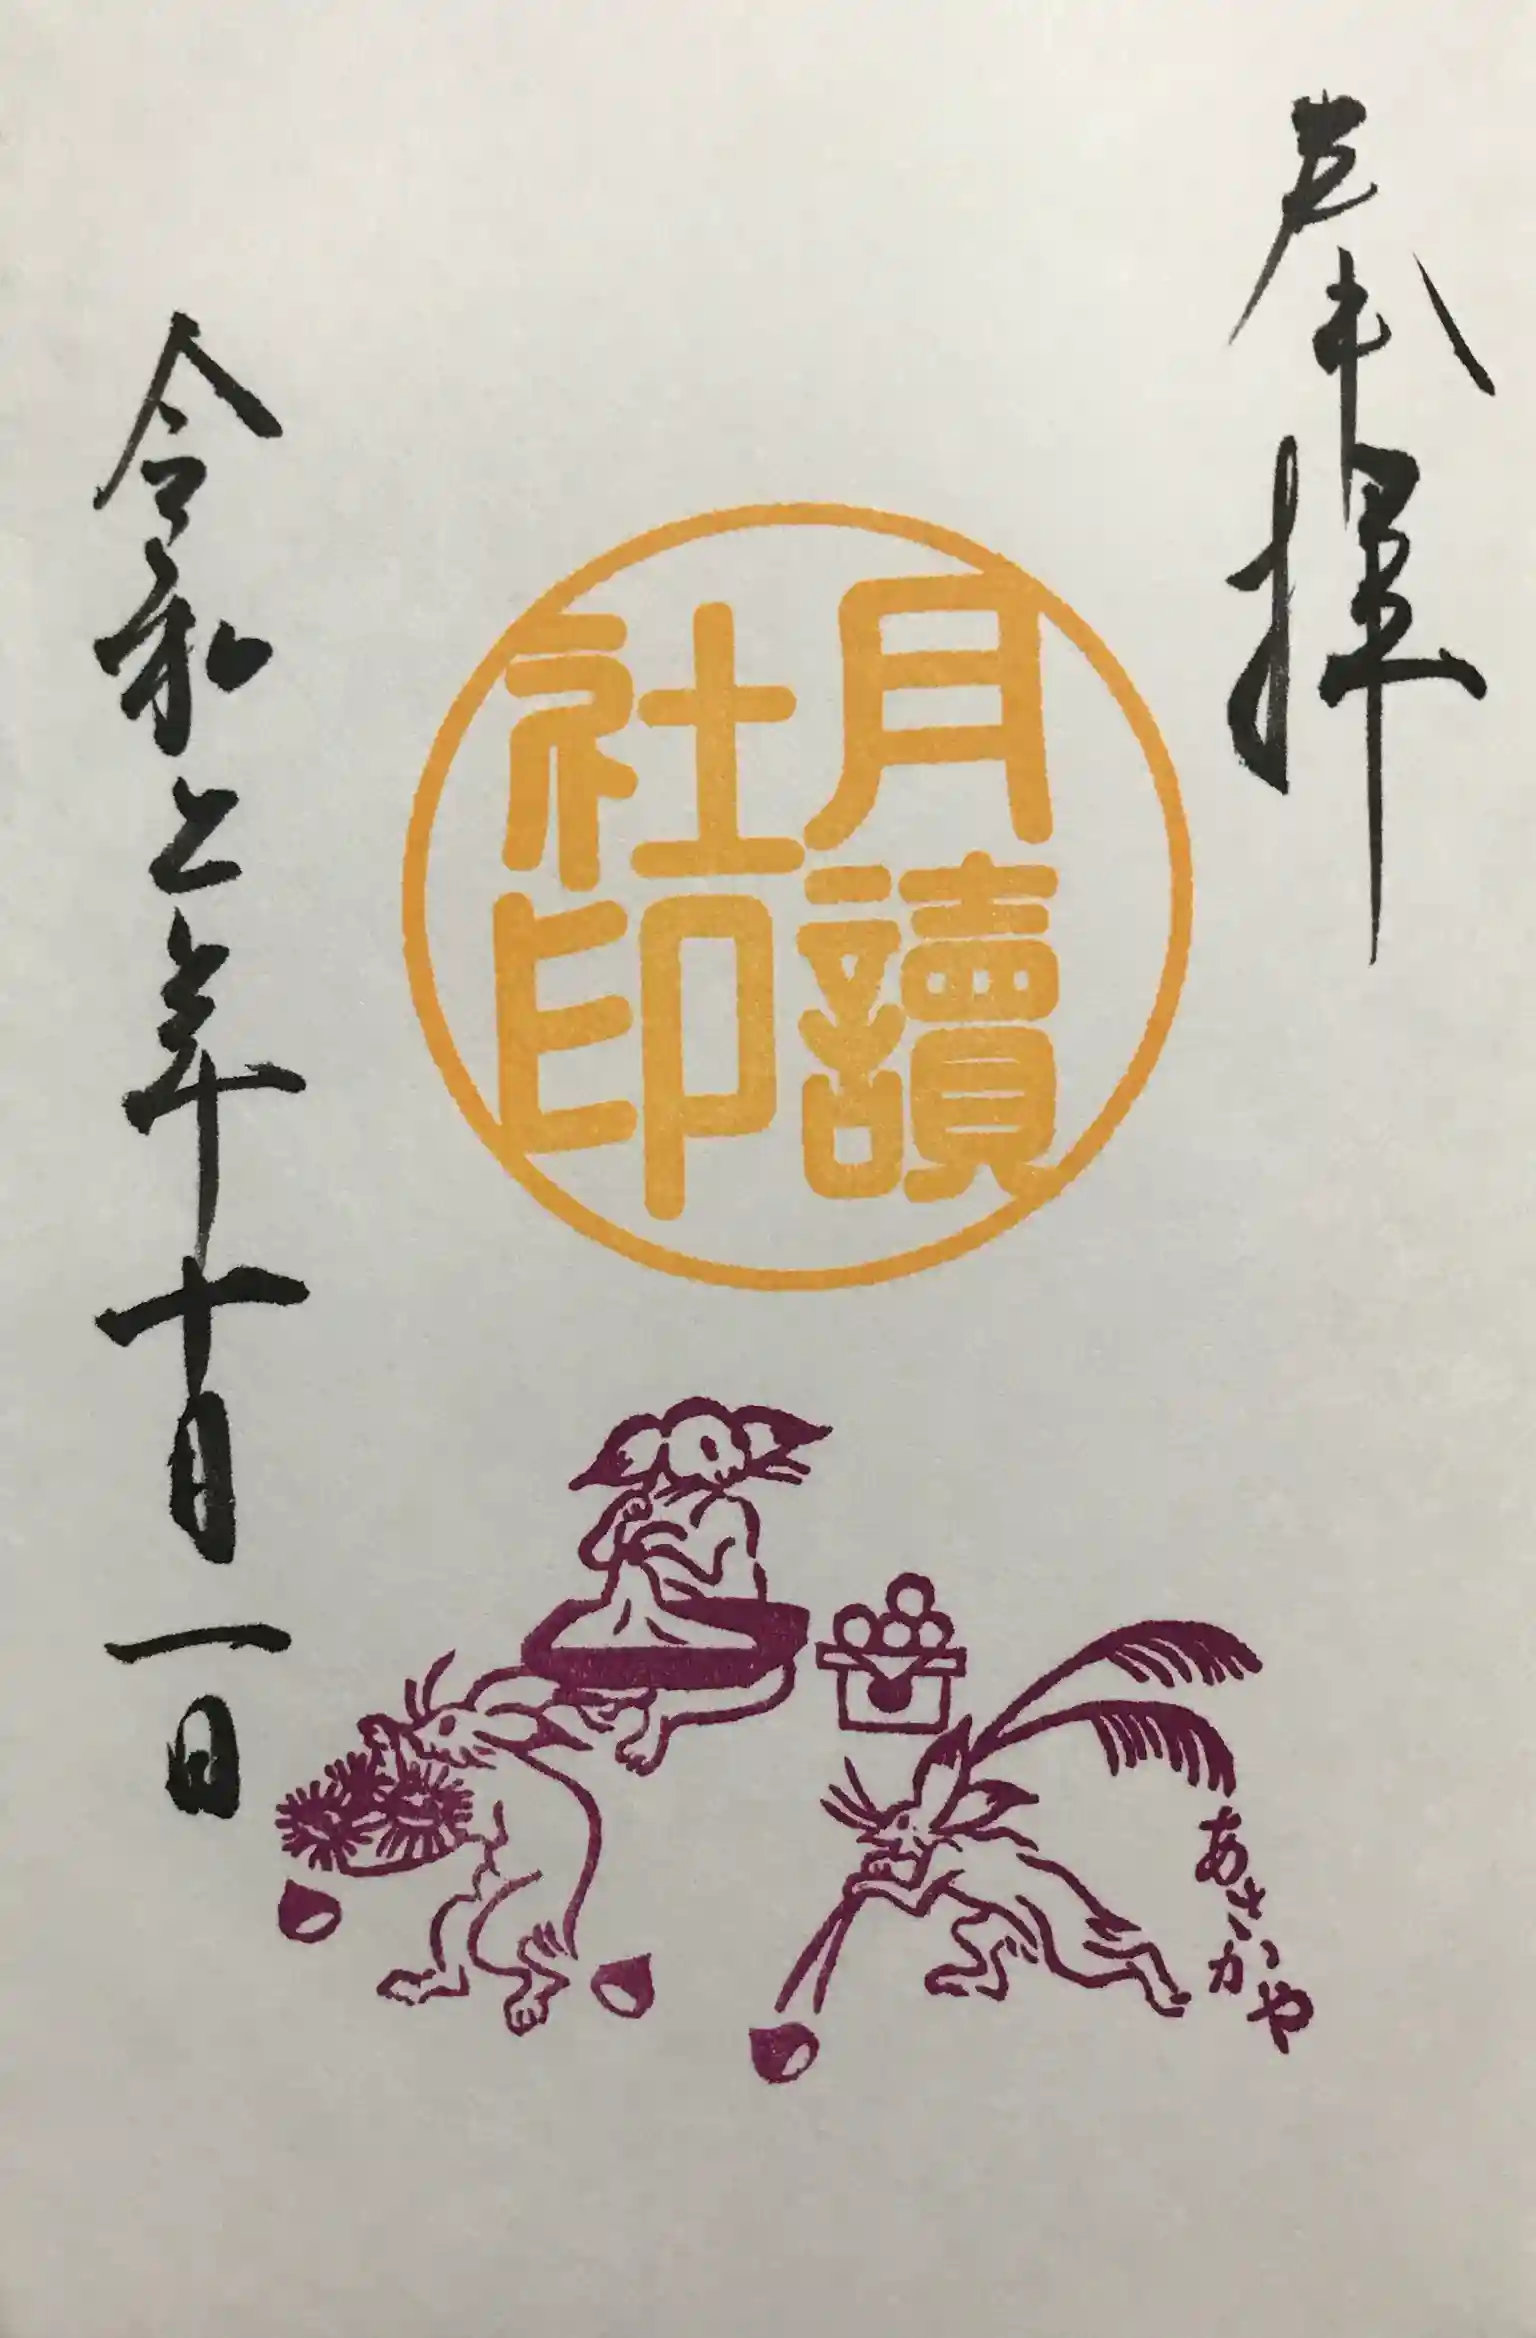 奉拝
月讀
社印
令和二年十月一日
あさかや